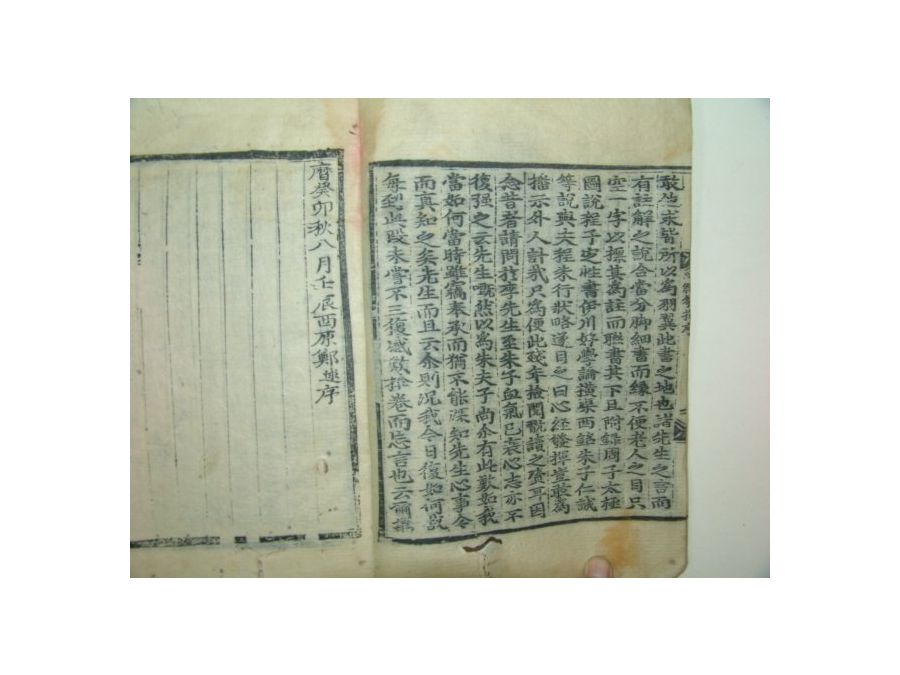 敢生求皆所以爲羽翼此書之地也諸先生之言而
有註解之說合當分脚細書而緣不便老人之目只
空一字以標其爲註而聯書其下且附錄周子太極
圖說程子定性書伊川好學論橫渠西銘朱子仁說
等說與夫程朱行狀略遂目之曰心經發揮豈敢爲
播示外人計我只爲便此殘年檢閱觀讀之資耳因
念昔者請問於李先生至朱子血氣已衰心志亦不
復强之云先生嘅然以爲朱夫子尚亦有此歎如我
當如何當時雖竊奉承而猶不能深知先生心事今
而眞知之矣先生而且云余則況我今日復如何哉
每到此段未嘗不三復感歎捨卷而忘言也云爾萬
曆癸卯秋八月壬辰西原鄭逑序